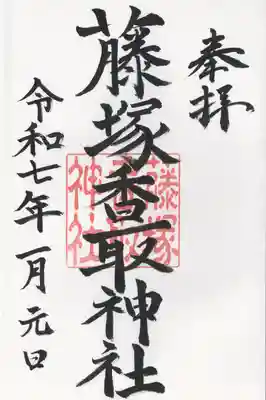 奉拝
藤塚香取神社
藤塚香取神社
令和七年一月元日